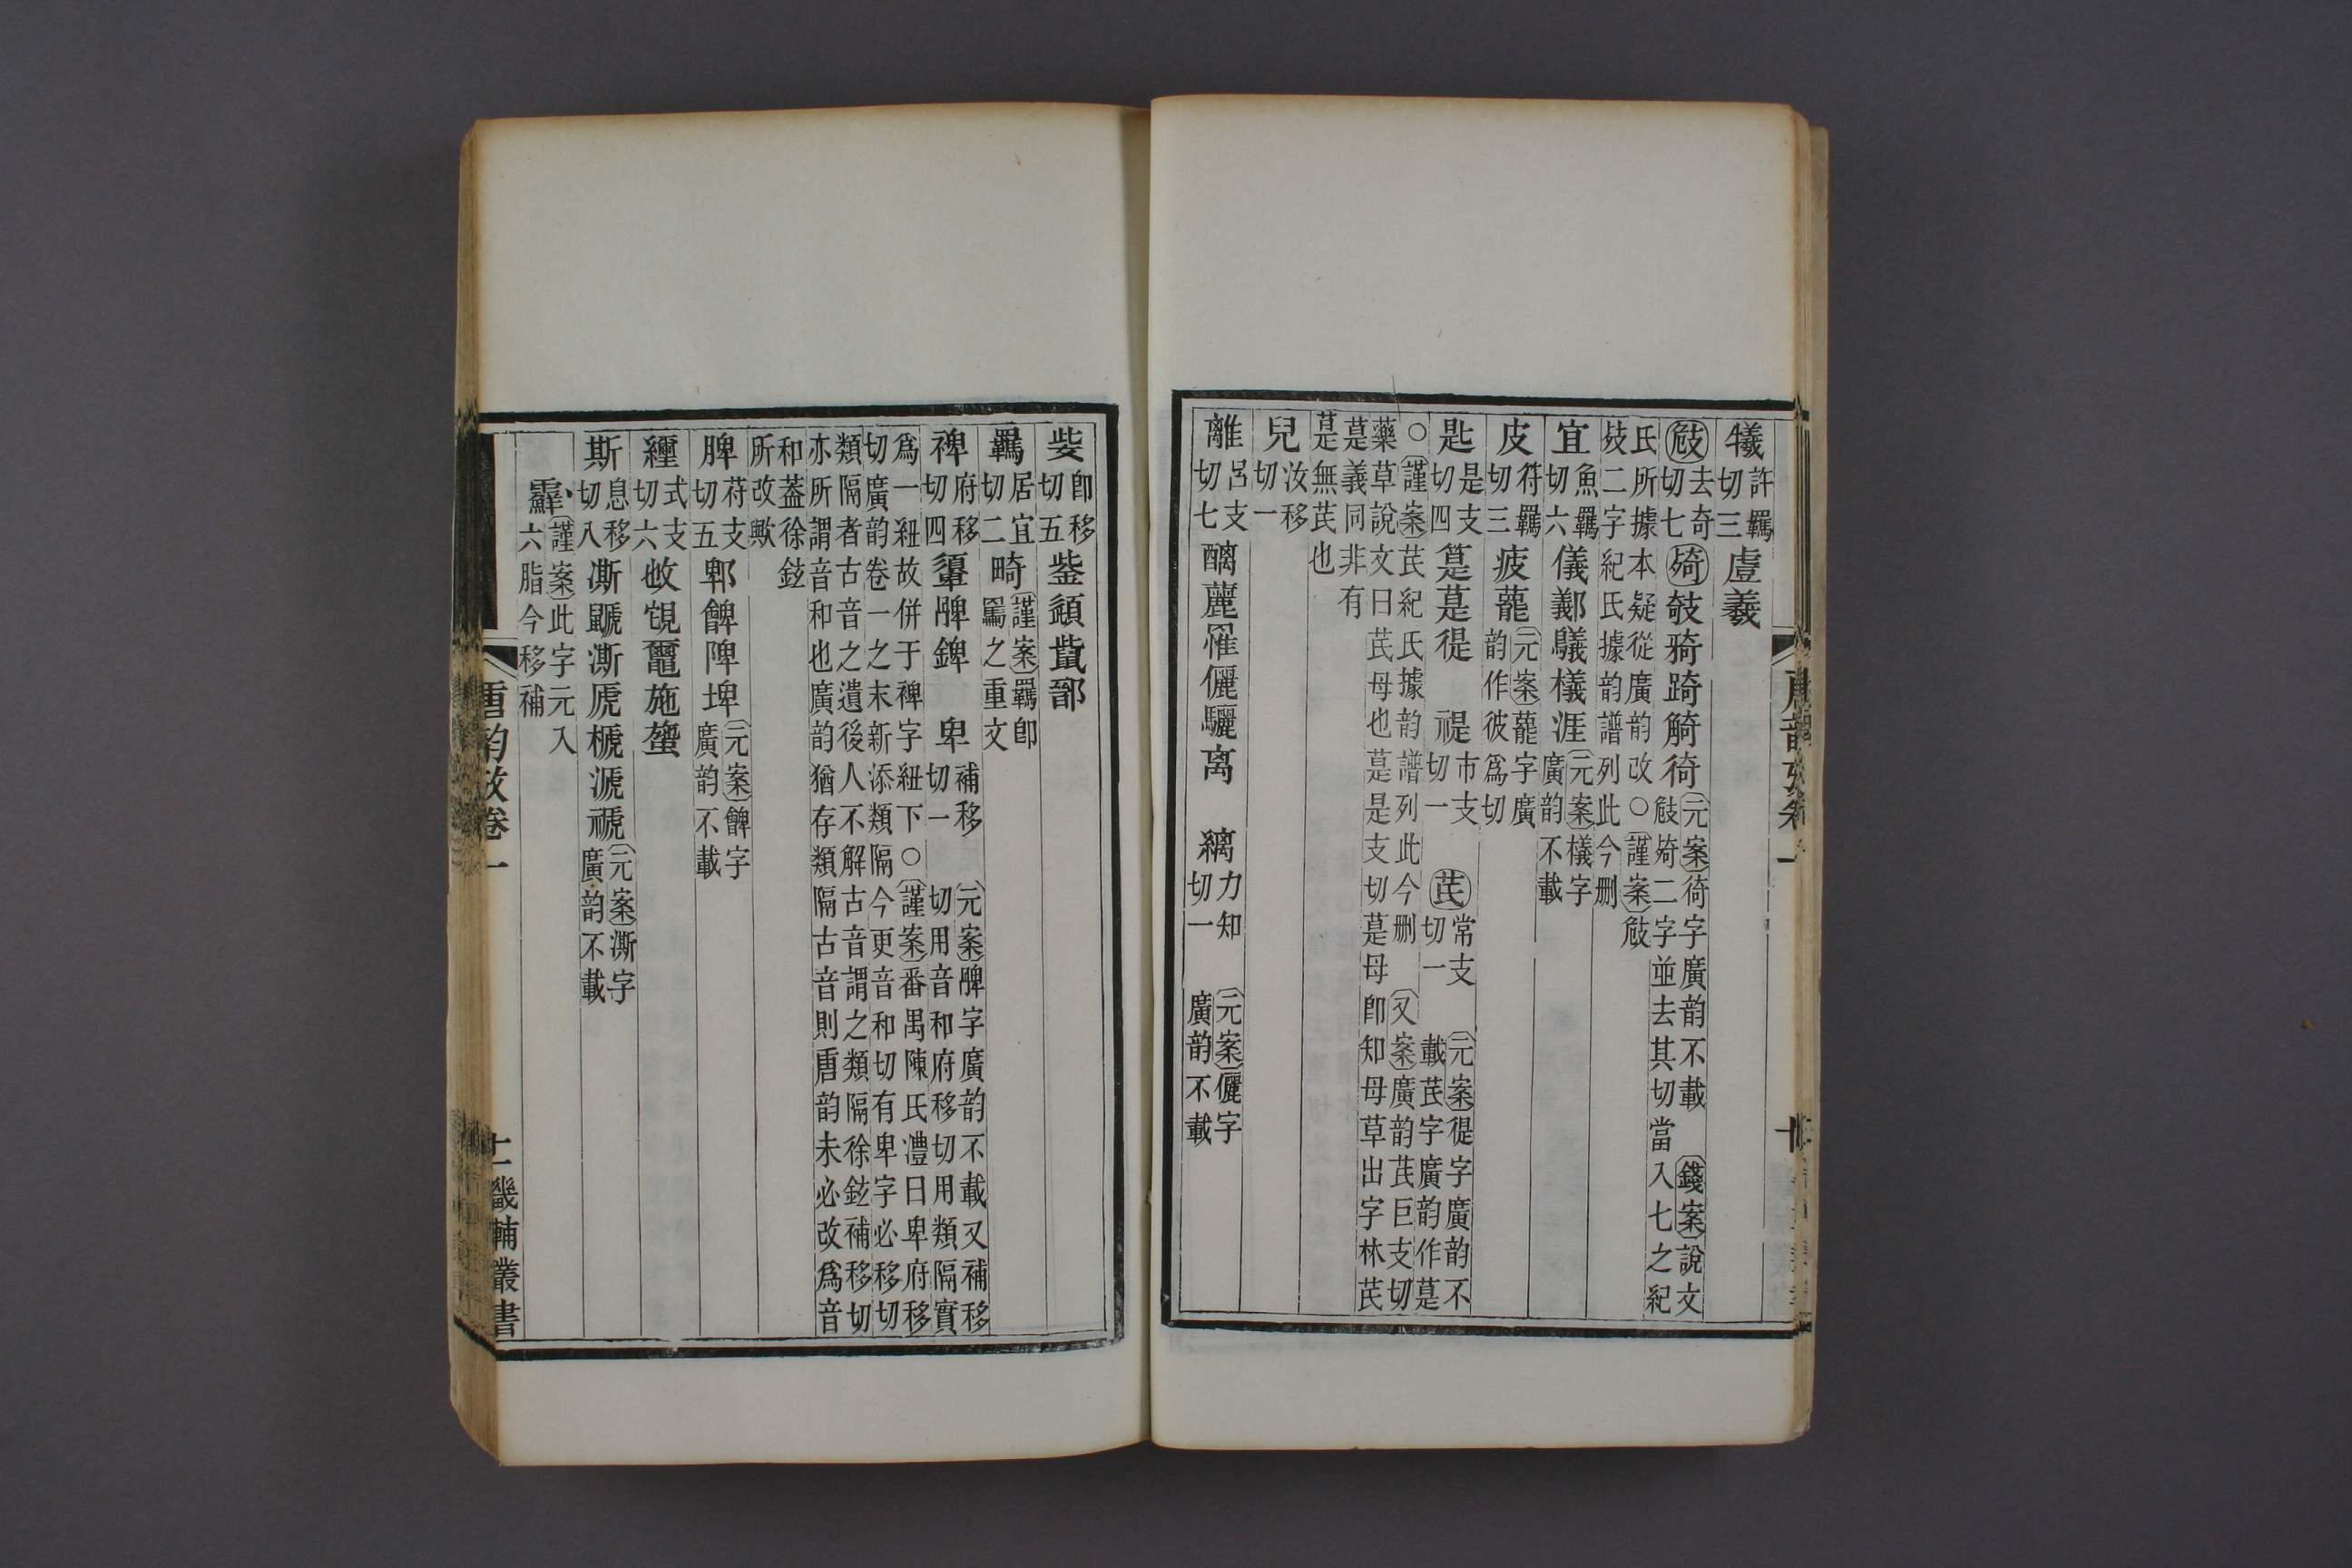 犧許羈切三虗羲
𢻪去奇切七㱦攲䯊踦觭徛元案徛字廣韵不載 錢案說文𢻪㱦二字並去其切當入七之紀
氏所據本疑從廣韵改○謹案𢻪㩻二字紀氏據韵譜列此今刪
宜魚羈切六儀鄯轙檥涯元案檥字廣韵不載
皮符羈切三疲蘢元案蘢字廣韵作彼爲切
匙是支切四箟䓳徥 禔市支切一 芪常支切一 元案徥字廣韵不載芪字廣韵作䓳
○謹案芪紀氏據韵譜列此今刪 又案廣韵芪巨支切
藥草說文曰芪母也䓳是支切䓳母卽知母草出字林芪
䓳義同非有
䓳無芪也
兒汝移切一
離呂支切七醨麗罹儷驪离 縭力知切一 元案儷字廣韵不載
唐韵攷卷一
十
畿輔叢書
姕卽移切五鈭頿貲鄑
羈居宜切二畸謹案羈卽䮠之重文
裨府移切四𩌏䏶錍 卑補移切一 元案䏶字廣韵不載又補移切用音和府移切用類隔實
爲一紐故併于裨字紐下○謹案番禺陳氏澧曰卑府移
切廣韵卷一之末新添類隔今更音和切有卑字必移切
類隔者古音之遺後人不解古音謂之類隔徐鉉補移切
亦所謂音和也廣韵猶存類隔古音則唐韵未必改爲音
和葢徐鉉
所改歟
脾符支切五郫䬳陴埤元案䬳字廣韵不載
纚式支切六㢮覗鼅施䗐
斯息移切八凘鼶澌虒榹㴲禠元案澌字廣韵不載
謹案此字元入六脂今移補
唐韵攷卷一
畿輔叢書